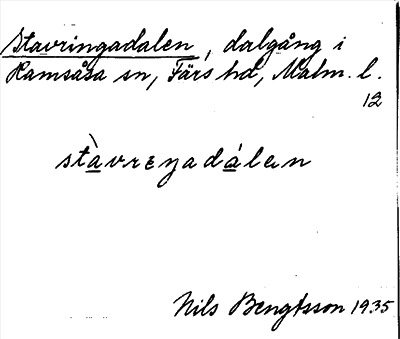 Stavringadalen, dalgång i
Ramsåsa sn, Färs hd, Malm. l.
12
stàvrɛŋadálɛn
Nils Bengtsson 1935